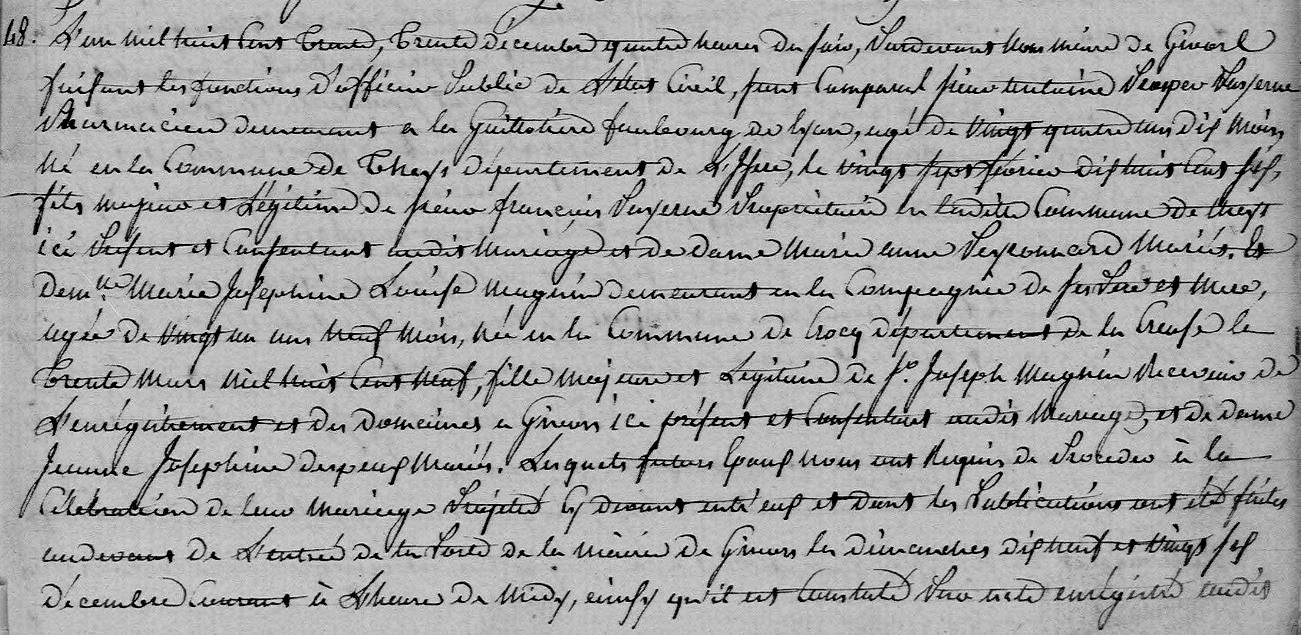 48. L'an mil huit cent trente, trente décembre quatre heures du soir, Pardevant nous maire de Givors
faisant les fonctions d'officier Public de L'état Civil, sont comparus sieur Antoine Prosper
Pharmacien demeurant a la Guillotière faubourg de Lyon, agé de vingt quatre ans dix mois,
né en la Commune de Theys département de L'Isère, le vingt sept février dix huit cent six,
fils majeur et Légitime de sieur françois Propriétaire en ladite Commune de theys
ici Présent et Consentant audit mariage et de Dame Marie anne Mariés. Et
Dem.lle Marie Joséphine Louise Magnin demeurant en la Compagnie de ses Père et Mère,
agée de vingt un ans neuf mois, née en la Commune de Crocq département de la Creuse le
trente Mars mil huit cent neuf, fille majeure et Légitime de Sr. Joseph Magnin Receveur de
L'enrégistrement et des Domaines a Givors ici présent et Consentant audit Mariage, et de dame
Jeanne Joséphine Mariés. Lesquels futurs Epoux nous ont Requis de Procéder à la
Célébration de leur mariage Projeté Cy devant entr'eux et dont les Publications ont été faites
audevant de L'entrée de la Porte de la mairie de Givors les dimanches dix neuf et vingt six
décembre Courant à L'heure de Midy, ainsy qu'il est Constaté Par acte enrégistré audit